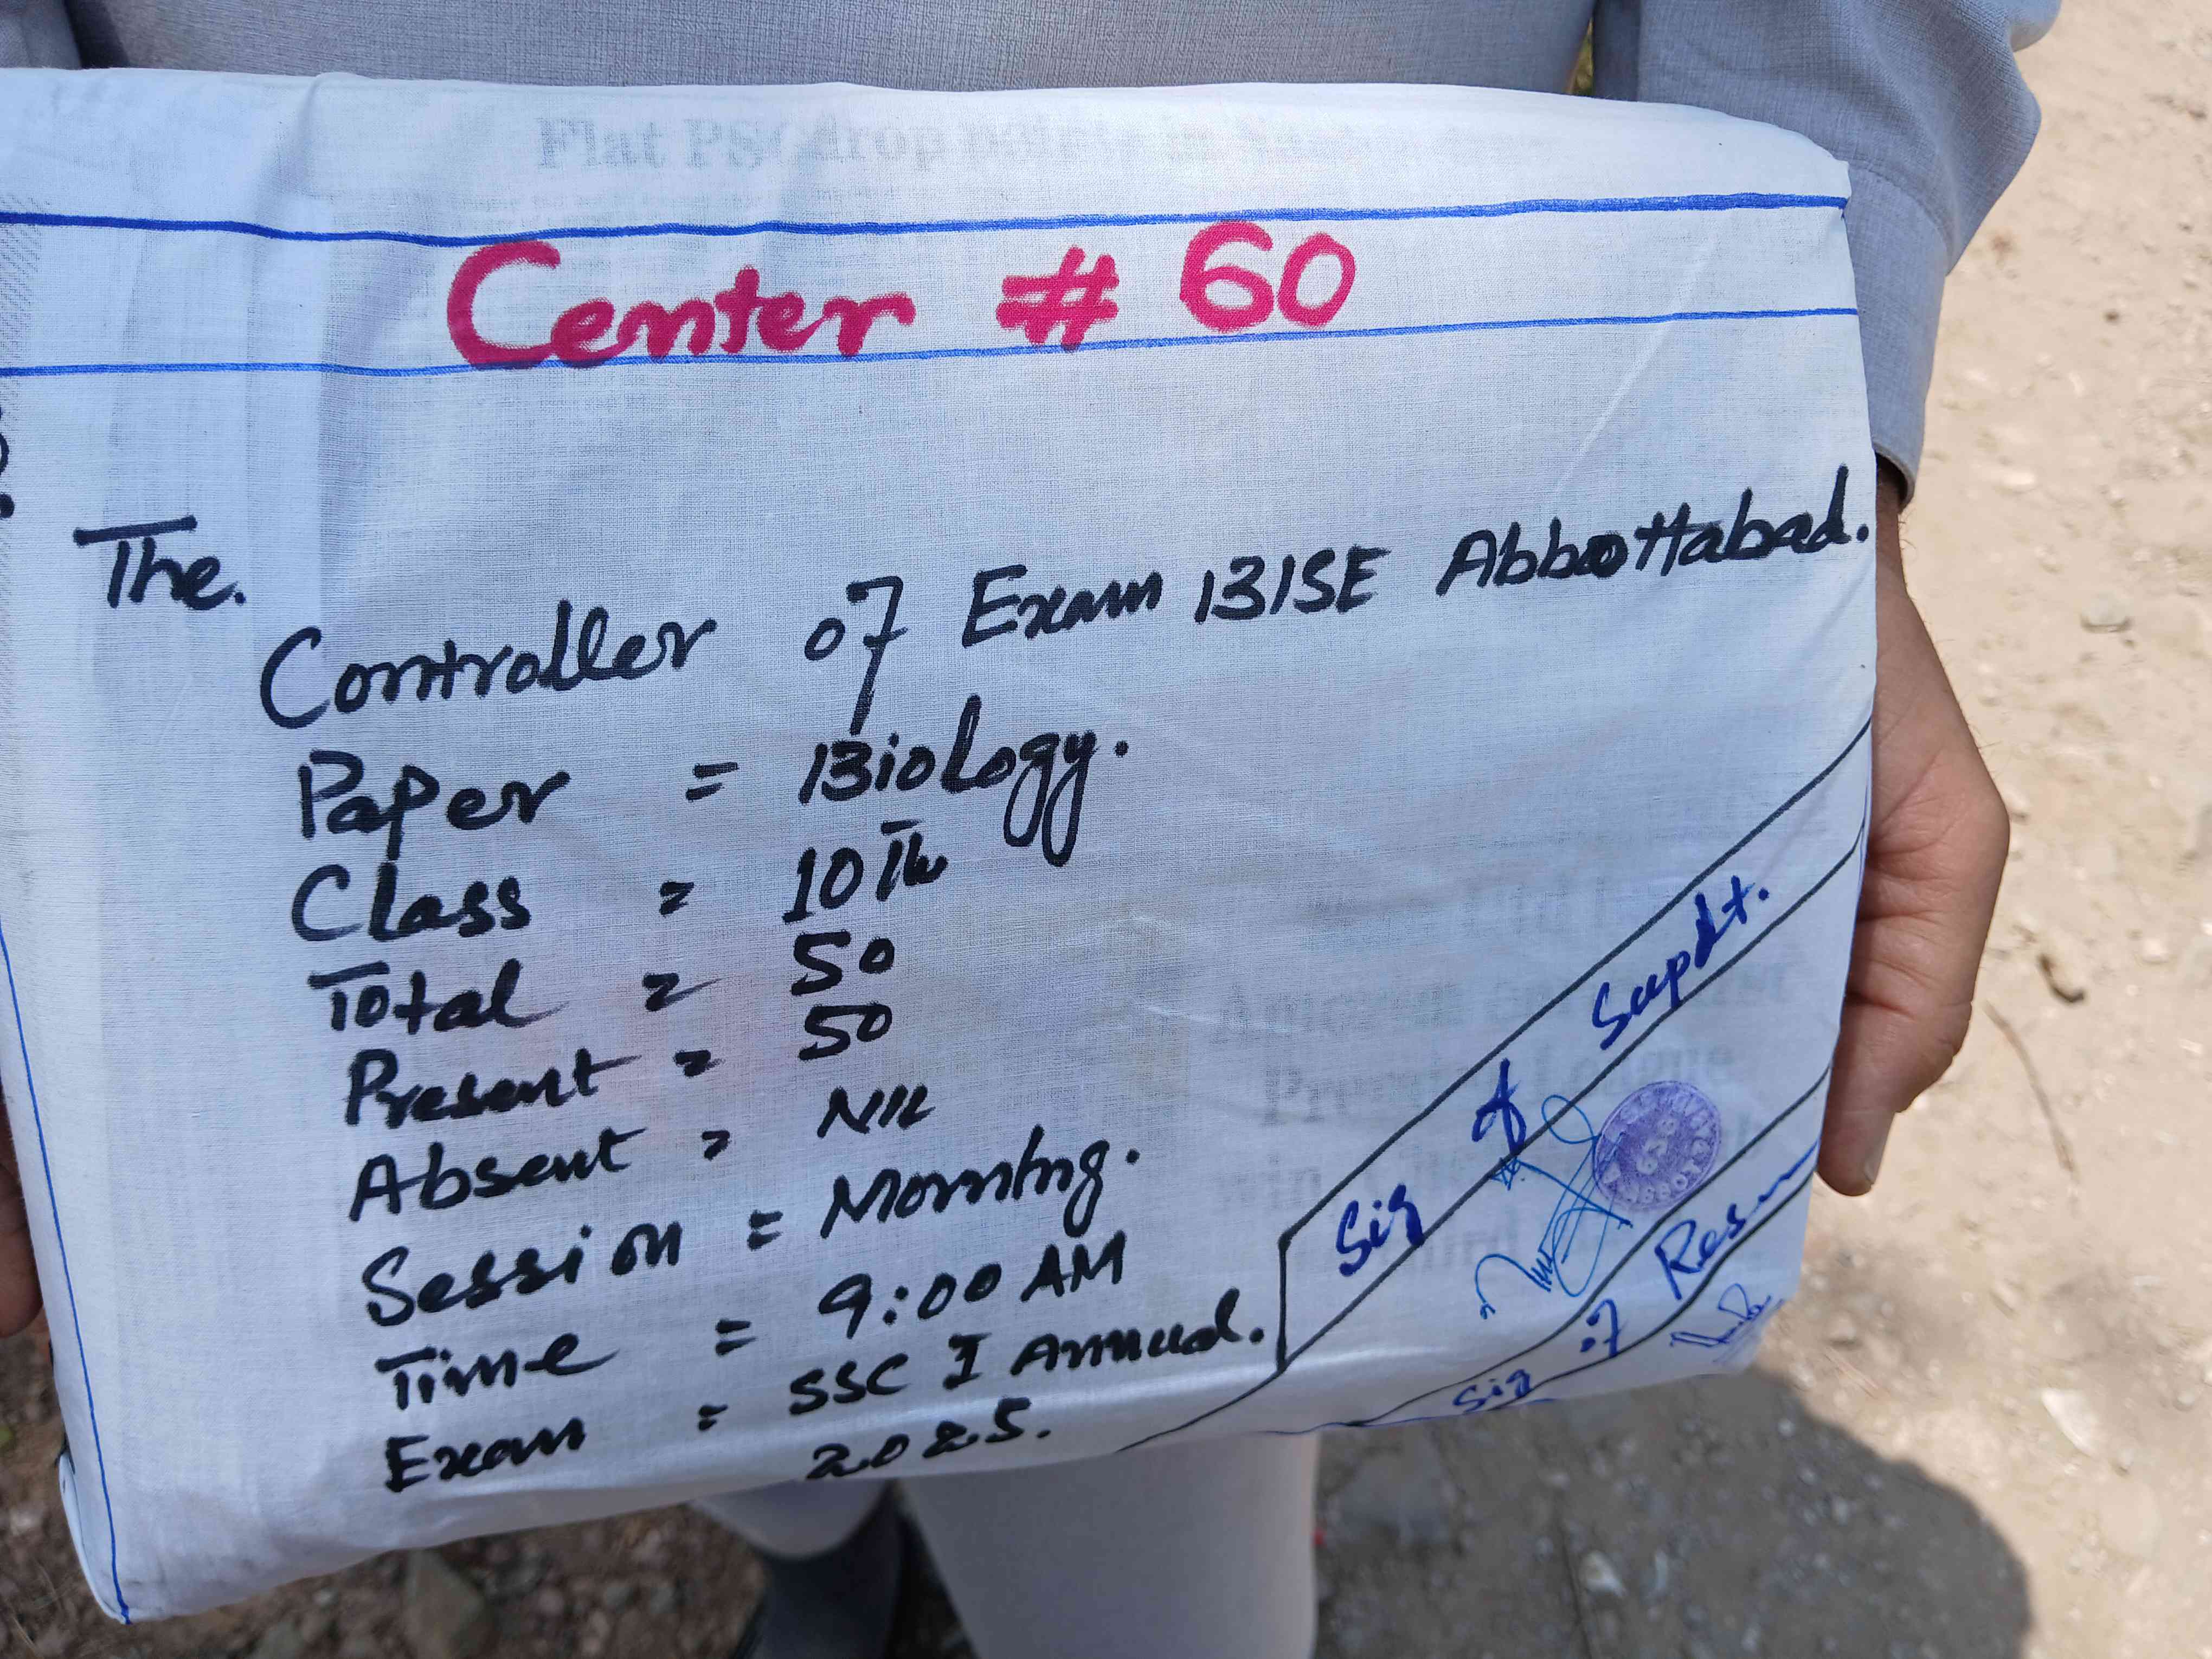 Flat PSC drop points in
Center # 60
The.
Controller of Exam BISE Abbottabad.
Paper = Biology.
Class = 10Th
Total = 50
Present = 50
Absent = Nil
Session = Morning.
Time = 9:00 AM
Exam = SSC I Annual.
2025.
Sig of Supdt.
Sig of Res